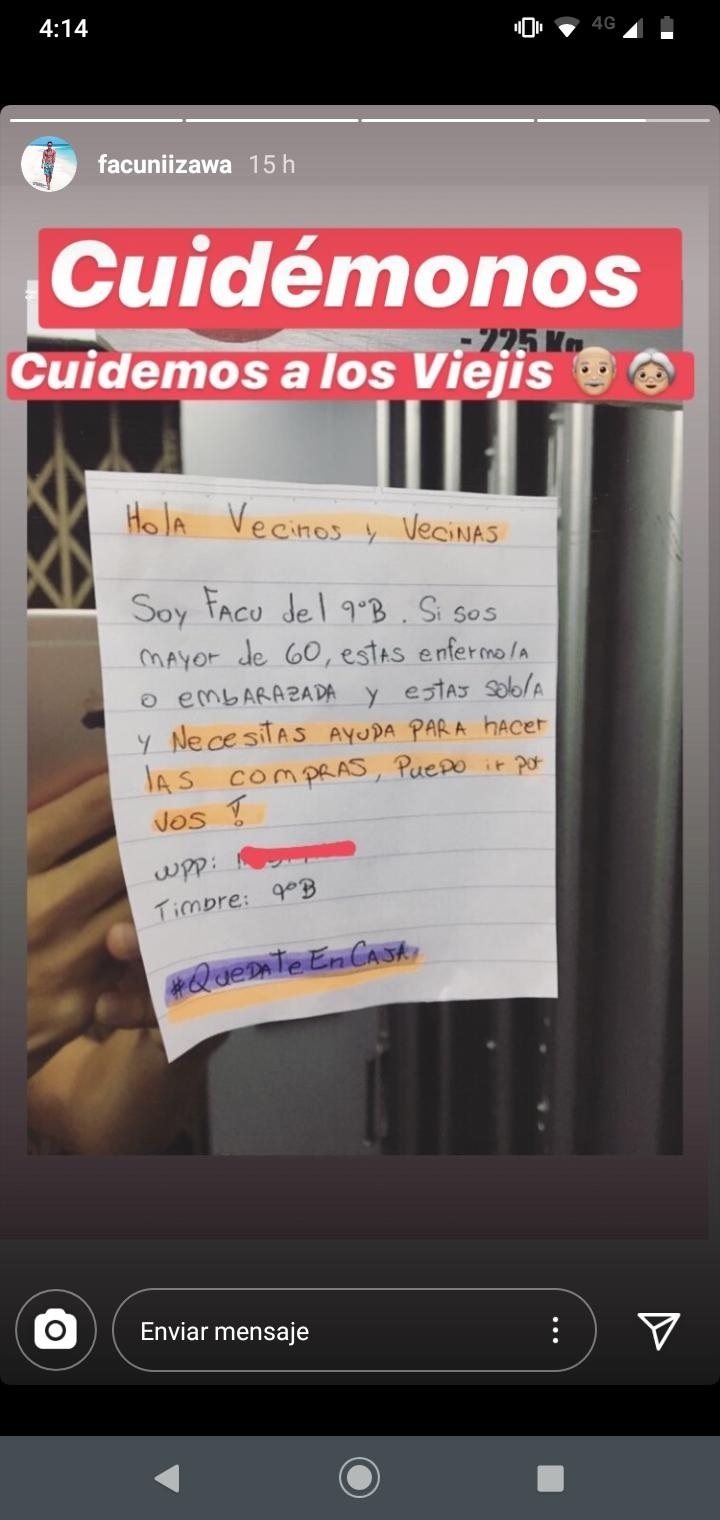 4:14
4G
facuniizawa 15 h
Cuidémonos
- 225 Kg
Cuidemos a los Viejis
Hola Vecinos y Vecinas
Soy Facu del 9°B. Si sos
mayor de 60, estas enfermo/a
o embarazada y estas solo/a
y Necesitas ayuda para hacer
las compras, Puedo ir por
vos!
wpp:
Timbre: 9°B
#QuedateEnCasa
Enviar mensaje